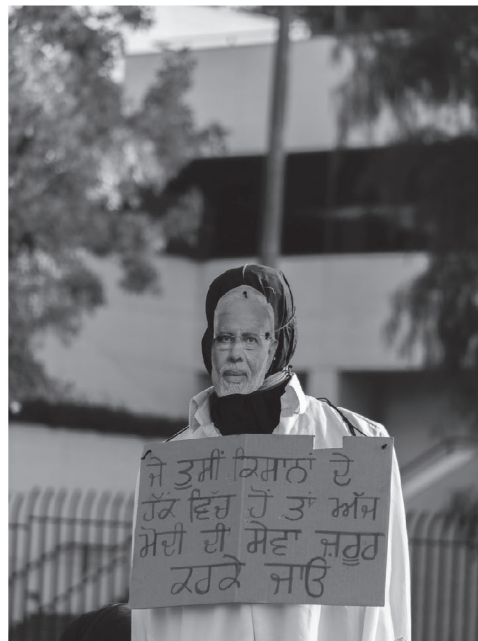 ਜੇ ਤੁਸੀਂ ਕਿਸਾਨਾਂ ਦੇ
ਹੱਕ ਵਿੱਚ ਹੋਂ ਤਾਂ ਅੱਜ
ਮੋਦੀ ਦੀ ਸੇਵਾ ਜ਼ਰੂਰ
ਕਰਕੇ ਜਾਓ